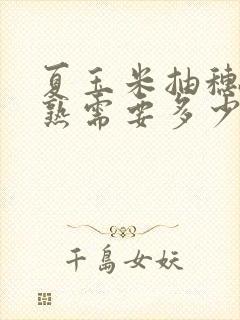 夏玉米抽穗
熟需要多少
千島女妖